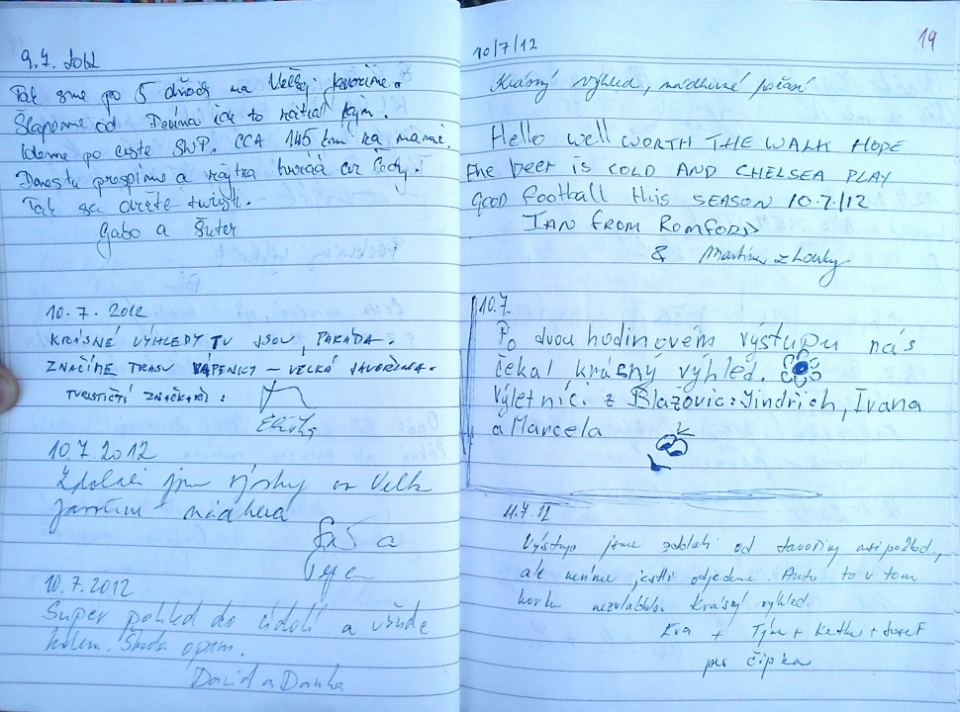 9.7. 2012
Tak sme po 5 dňoch na Veľkej Javorine.
Šlapeme od Devína ide to nátiaľ fajn.
Ideme po ceste SNP. CCA 145 km za nami.
Dnes tu prespíme a zajtra huráá cez Čechy!
Tak sa držte
Gabo a Šuter
10.7. 2012
KRÁSNÉ VÝHLEDY TU JSOU, PARÁDA.
ZNAČÍME TRASU VÁPENKY – VELKÁ JAVOŘINA.
TURISTIČTÍ ZNAČKAŘI:
10.7.2012
Zdolali jsme výšky na Velk
Javořinu nádhera
a
10.7.2012
Super pohled do údolí a všude
kolem. Škoda oparu.
David a Danka
19
10/7/12
Krásný výhled, nádherné počasí
Hello well WORTH THE WALK HOPE
the beer is COLD AND CHELSEA PLAY
GOOD football this SEASON 10.7/12
IAN FROM ROMFORD
& Martina z Louky
10.7.
Po dvou hodinovém výstupu nás
čekal krásný výhled.
Výletníci z Blažovic: Jindřich, Ivana
a Marcela
11.7.12
Výstup jsme zdolali od Javořiny
ale nevíme jestli odjedeme. Auto to v tom
horku nezvládlo. Krásný výhled.
Eva + Týna + Katka + Josef
pes Čipka